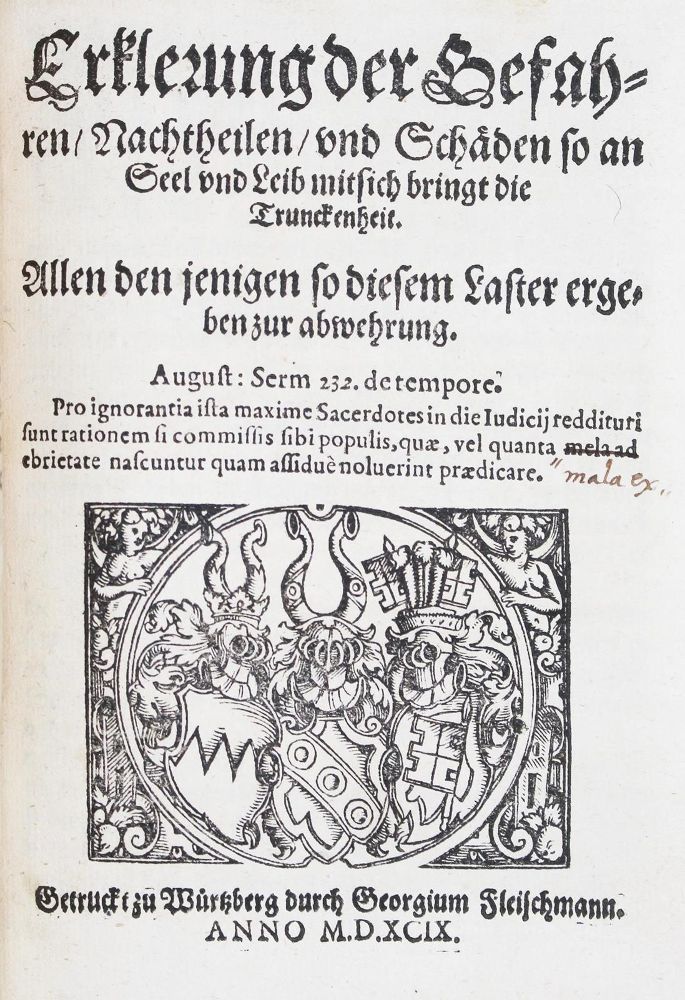 Erklerung der Gefah-
ren/ Nachtheilen/ vnd Schäden so an
Seel vnd Leib mitsich bringt die
Trunckenheit.
Allen den jenigen so diesem Laster erge-
ben zur abwehrung.
August: Serm 232. de tempore.
Pro ignorantia ista maxime Sacerdotes in die Iudicij reddituri
sunt rationem si commissis sibi populis, quæ, vel quanta mela ad
ebrietate nascuntur quam assiduè noluerint prædicare. "mala ex"
Getruckt zu Würtzberg durch Georgium Fleischmann.
ANNO M.D.XCIX.